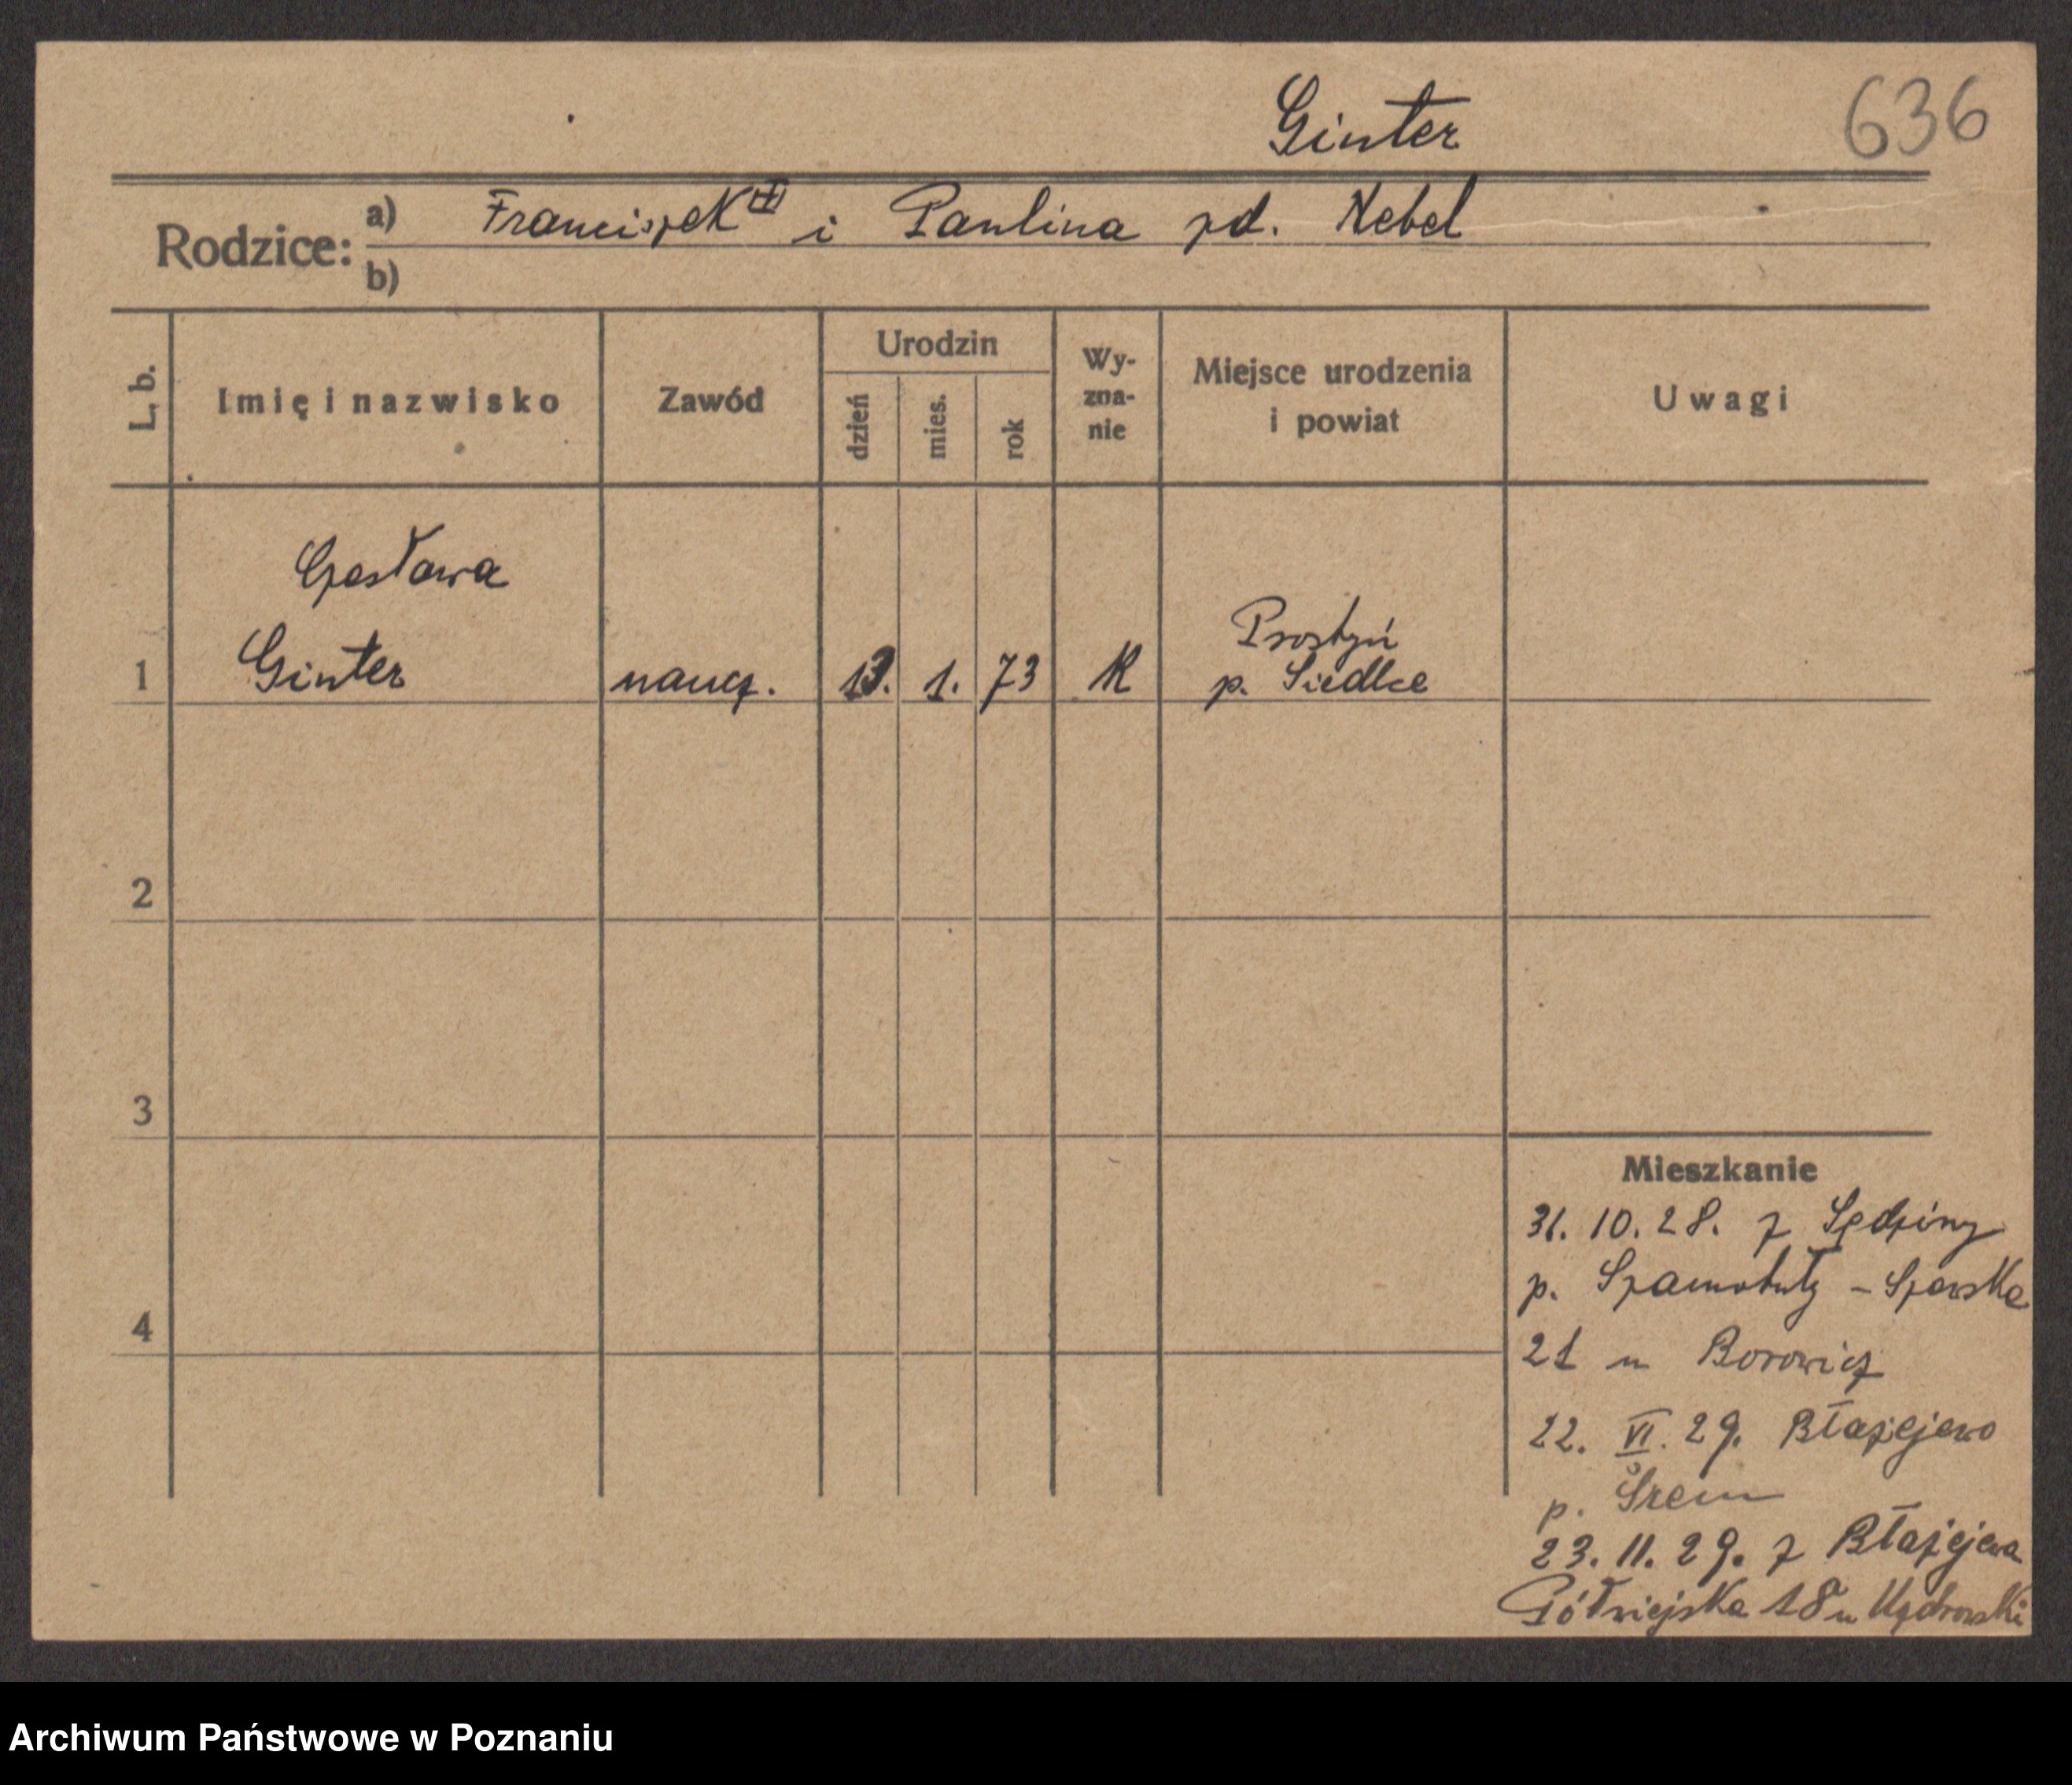 Ginter
636
Rodzice: a) Franciszek i Paulina zd. Nebel
b)
L. b.
Imię i nazwisko
Zawód
Urodzin
dzień
mies.
rok
Wy-
zna-
nie
Miejsce urodzenia
i powiat
Uwagi
Czesława
1 Ginter naucz. 13. 1. 73 K Prostyń
p. Siedlce
2
3
4
Mieszkanie
31. 10. 28. z Sędziny
p. Szamotuły - Szewska
21 u Borowicz
22. VI. 29. Błażejewo
p. Śrem
23. 11. 29. z Błażejewa
Półwiejska 18 u
Archiwum Państwowe w Poznaniu